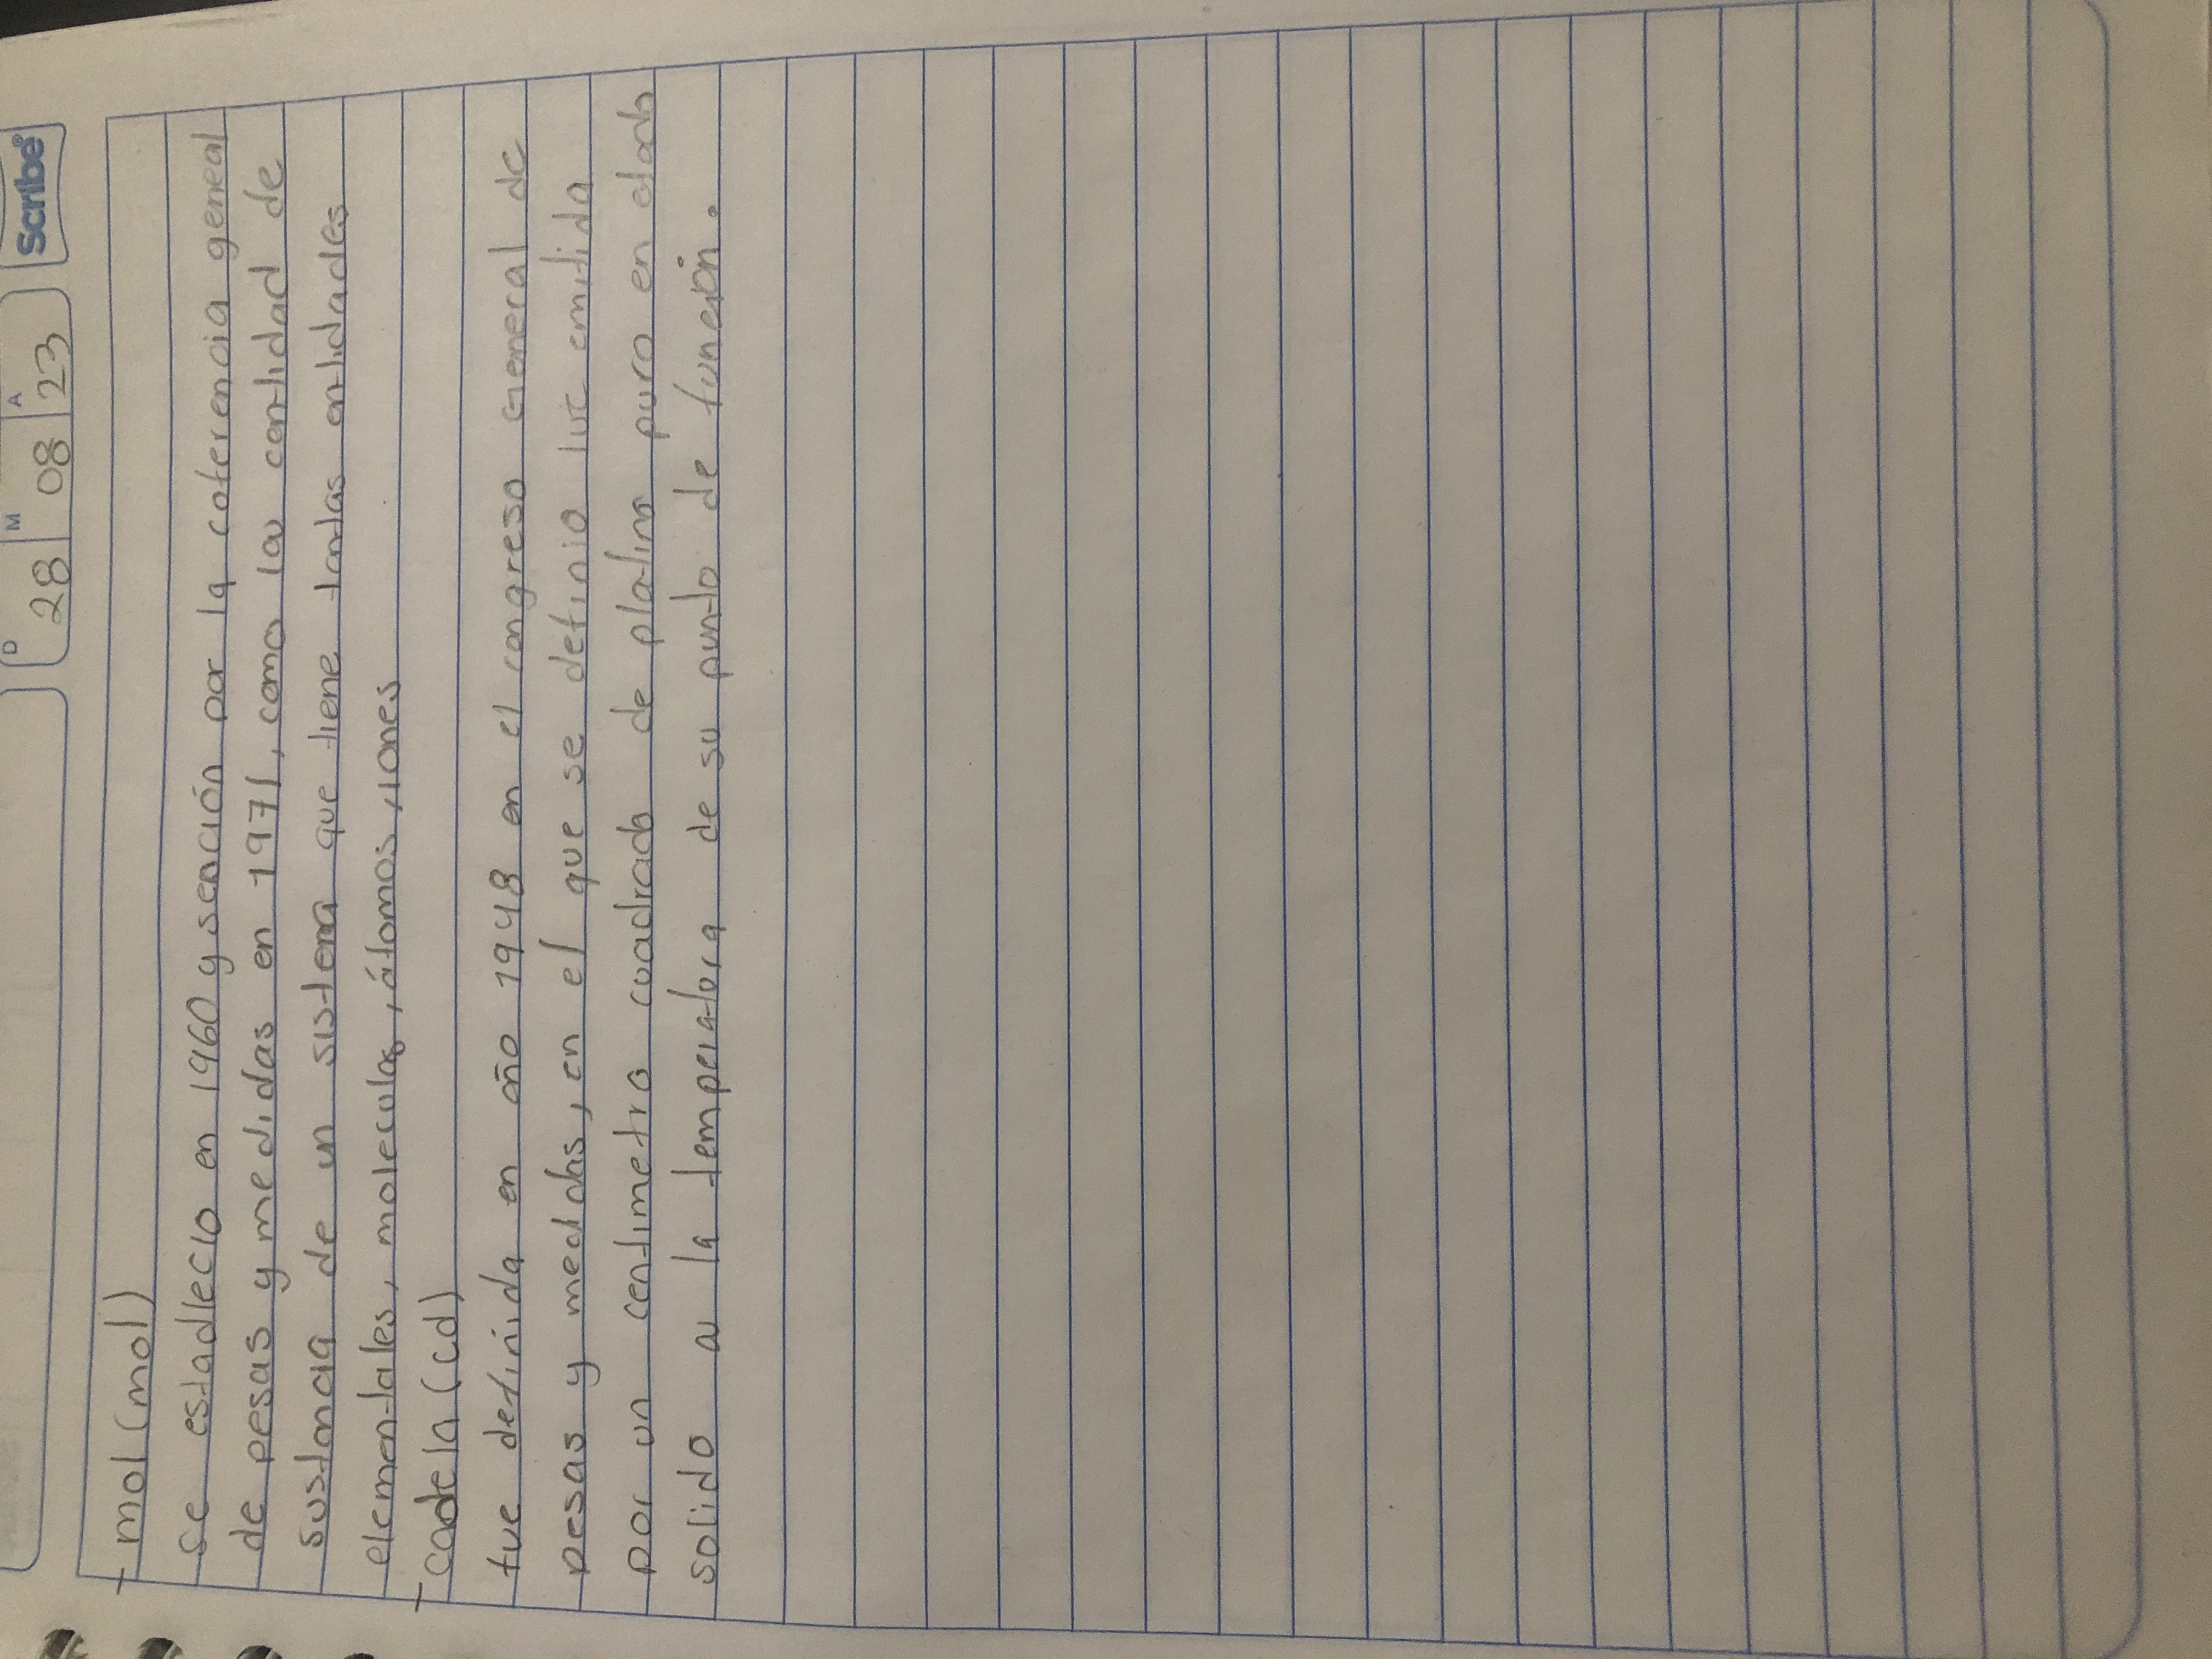 D M A
28 08 23 Scribe
- mol (mol)
se estadlecio en 1960 y sención por la coferencia general
de pesas y medidas en 1971, como la contidad de
sustancia de un sistema que tiene tantas entidades
elementales, moleculas, átomos, iones
- cadela (cd)
fue definida en año 1948 en el congreso General de
pesas y medidas, en el que se definio luz emitida
por un centimetro cuadrado de platino puro en estado
solido a la temperatura de su punto de funcion.